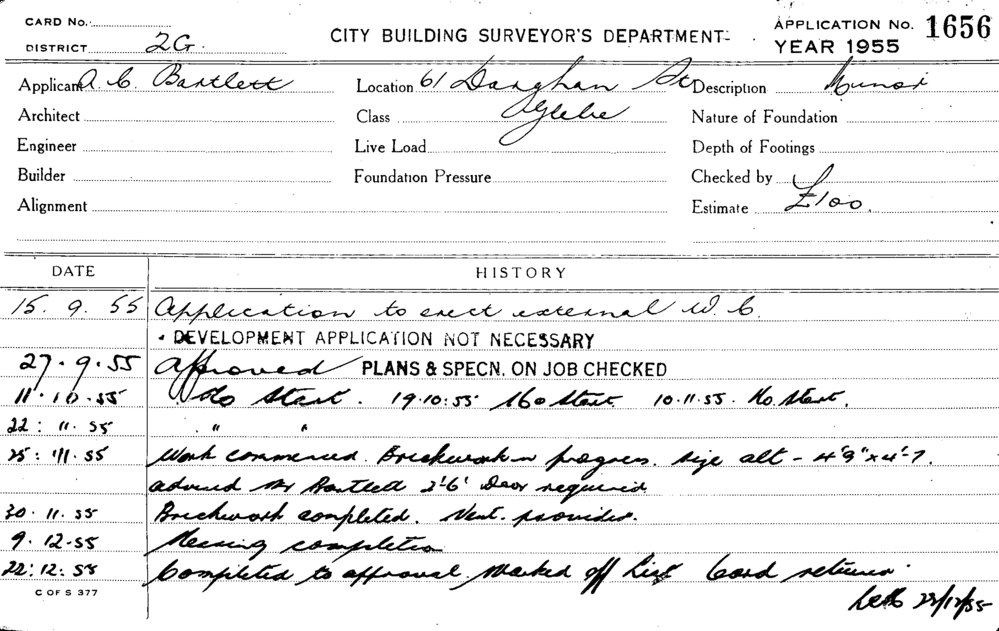 CARD No.
DISTRICT 2G.
CITY BUILDING SURVEYOR'S DEPARTMENT
APPLICATION No. 1656
YEAR 1955
Applicant A. C. Bartlett Location 61 Darghan St Description Minor
Architect Class Glebe Nature of Foundation
Engineer Live Load Depth of Footings
Builder Foundation Pressure Checked by
Alignment Estimate £100.
DATE HISTORY
15. 9. 55 Application to erect external W.C.
DEVELOPMENT APPLICATION NOT NECESSARY
27. 9. 55 Approved PLANS & SPECN. ON JOB CHECKED
11. 10. 55 No Start. 19.10.55 No Start. 10.11.55. No Start.
22: 11. 55 " "
25: 11. 55 Work commenced. Brickwork in progress. size alt - 4'9" x 4'-7.
advised Mr Bartlett 2'6' Door required
30. 11. 55 Brickwork completed. Vent. provided.
9. 12-55 Nearing completion
22: 12: 55 Completed to approval Marked off List Card returned.
C OF S 377
23/12/55